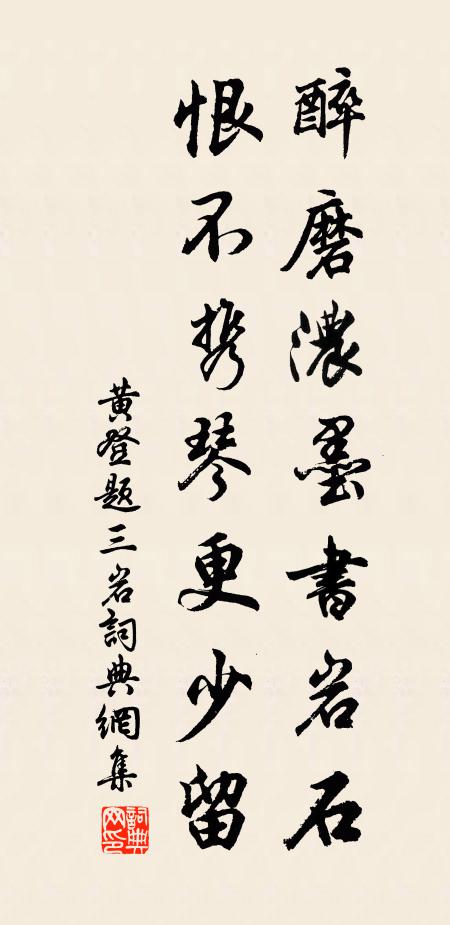 醉磨濃墨書岩石
恨不携琴更少留
黄登題三岩詞典網集
詞典網印